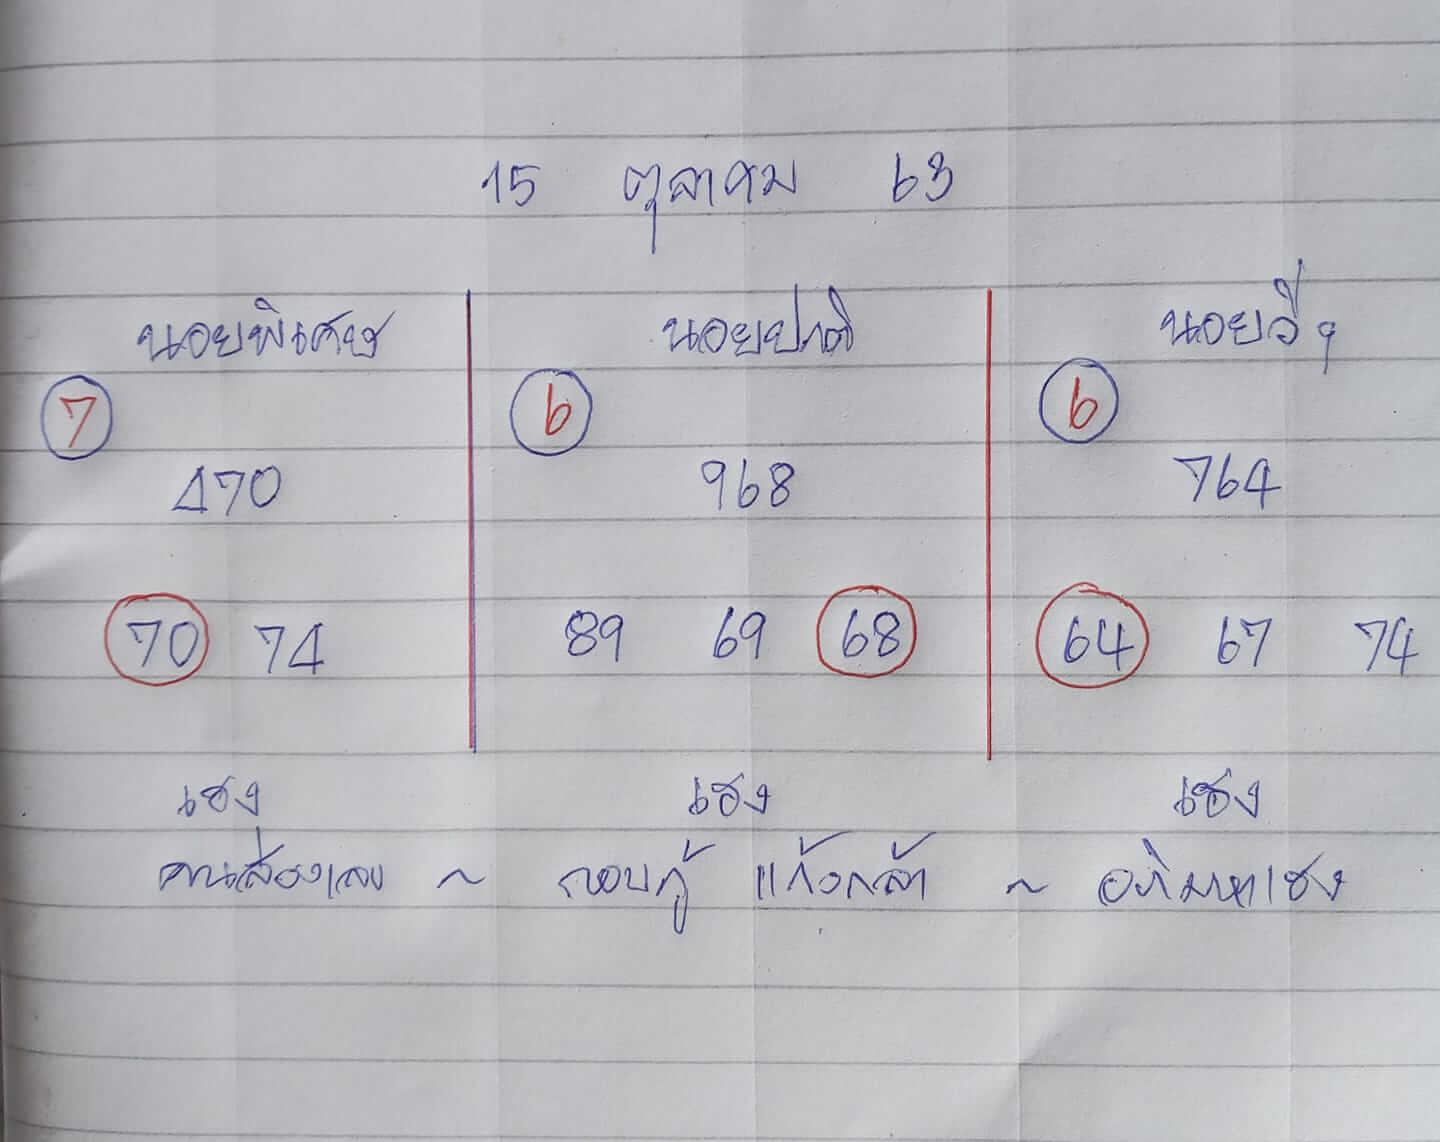 15 ตุลาคม 63
นอยพิเศษ นอยปกติ นอยวีๆ
7 6 6
470 968 764
70 74 89 69 68 64 67 74
เฮง เฮง เฮง
คนส่องเลข ~ กอบกู้ แก้วกล้า ~ อภิมหาเฮง